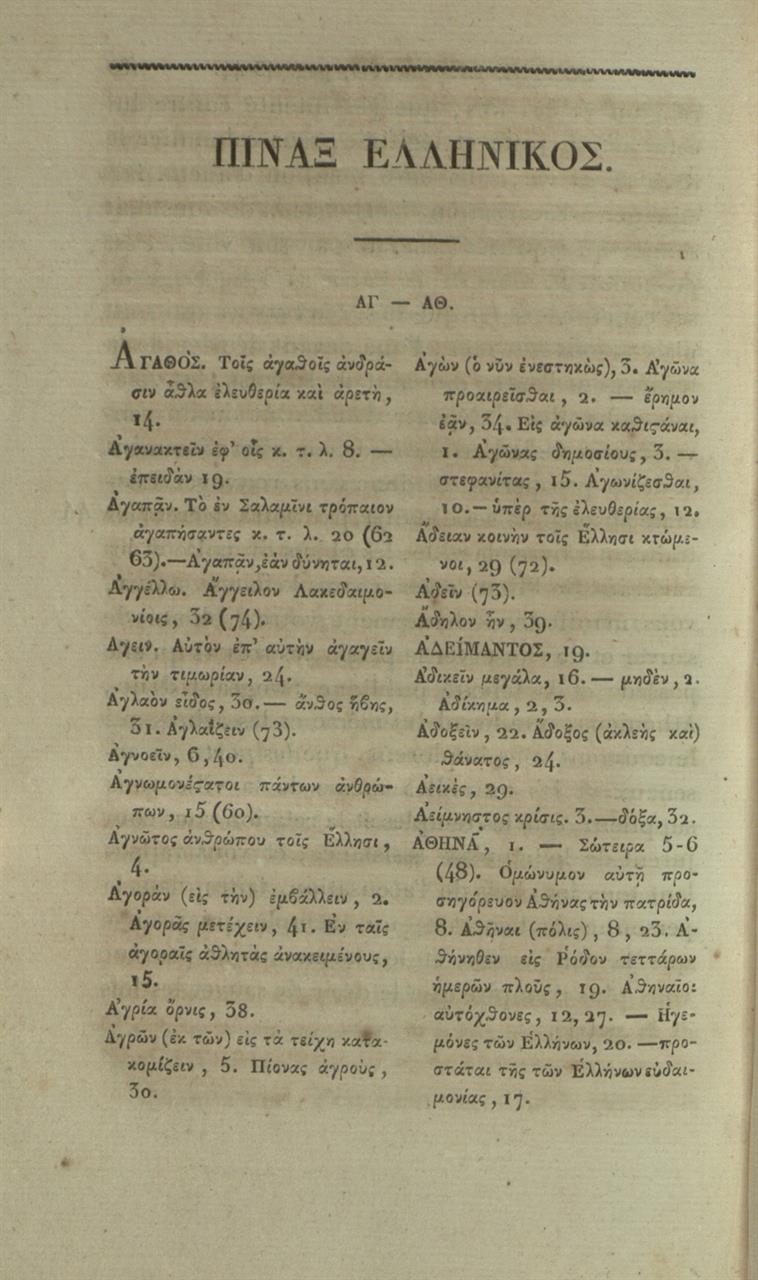 ΠΙΝΑΞ ΕΛΛΗΝΙΚΟΣ.
ΑΓ — ΑΘ.
ἈΓΑΘΟΣ. Τοῖς ἀγαθοῖς ἀνδρά-
σιν ἆθλα ἐλευθερία καὶ ἀρετὴ,
14.
Ἀγανακτεῖν ἐφ' οἷς κ. τ. λ. 8. —
ἐπειδὰν 19.
Ἀγαπᾷν. Τὸ ἐν Σαλαμῖνι τρόπαιον
ἀγαπήσαντες κ. τ. λ. 20 (62
63).—Ἀγαπᾶν, ἐὰν δύνηται, 12.
Ἀγγέλλω. Ἄγγειλον Λακεδαιμο-
νίοις, 32 (74).
Αγειν. Αὐτὸν ἐπ' αὐτὴν ἀγαγεῖν
τὴν τιμωρίαν, 24.
Ἀγλαὸν εἶδος, 30.— ἄνθος ἥβης,
31. Ἀγλαΐζειν (73).
Ἀγνοεῖν, 6, 40.
Ἀγνωμονέστατοι πάντων ἀνθρώ-
πων, 15 (60).
Ἀγνῶτος ἀνθρώπου τοῖς Ἕλλησι,
4.
Ἀγορὰν (εἰς τὴν) ἐμβάλλειν, 2.
Ἀγορᾶς μετέχειν, 41. Ἐν ταῖς
ἀγοραῖς ἀθλητὰς ἀνακειμένους,
15.
Ἀγρία ὄρνις, 38.
Ἀγρῶν (ἐκ τῶν) εἰς τὰ τείχη κατα-
κομίζειν, 5. Πίονας ἀγροὺς,
30.
Ἀγὼν (ὁ νῦν ἐνεστηκὼς), 3. Ἀγῶνα
προαιρεῖσθαι, 2. — ἔρημον
ἐᾷν, 34. Εἰς ἀγῶνα καθιστάναι,
1. Ἀγῶνας δημοσίους, 3. —
στεφανίτας, 15. Ἀγωνίζεσθαι,
10.— ὑπὲρ τῆς ἐλευθερίας, 12.
Ἄδειαν κοινὴν τοῖς Ἕλλησι κτώμε-
νοι, 29 (72).
Ἀδεῖν (73).
Ἄδηλον ἦν, 39.
ἈΔΕΊΜΑΝΤΟΣ, 19.
Ἀδικεῖν μεγάλα, 16.— μηδὲν, 2.
Ἀδίκημα, 2, 3.
Ἀδοξεῖν, 22. Ἄδοξος (ἀκλεὴς καὶ)
θάνατος, 24.
Ἀεικὲς, 29.
Ἀείμνηστος κρίσις. 3.—δόξα, 32.
ἈΘΗΝΑ͂, 1. — Σώτειρα 5-6
(48). Ὁμώνυμον αὐτῇ προ-
σηγόρευον Ἀθήνας τὴν πατρίδα,
8. Ἀθῆναι (πόλις), 8, 23. Ἀ-
θήνηθεν εἰς Ῥόδον τεττάρων
ἡμερῶν πλοῦς, 19. Ἀθηναῖοι
αὐτόχθονες, 12, 27. — Ἡγε-
μόνες τῶν Ἑλλήνων, 20. —προ-
στάται τῆς τῶν Ἑλλήνων εὐδαι-
μονίας, 17.